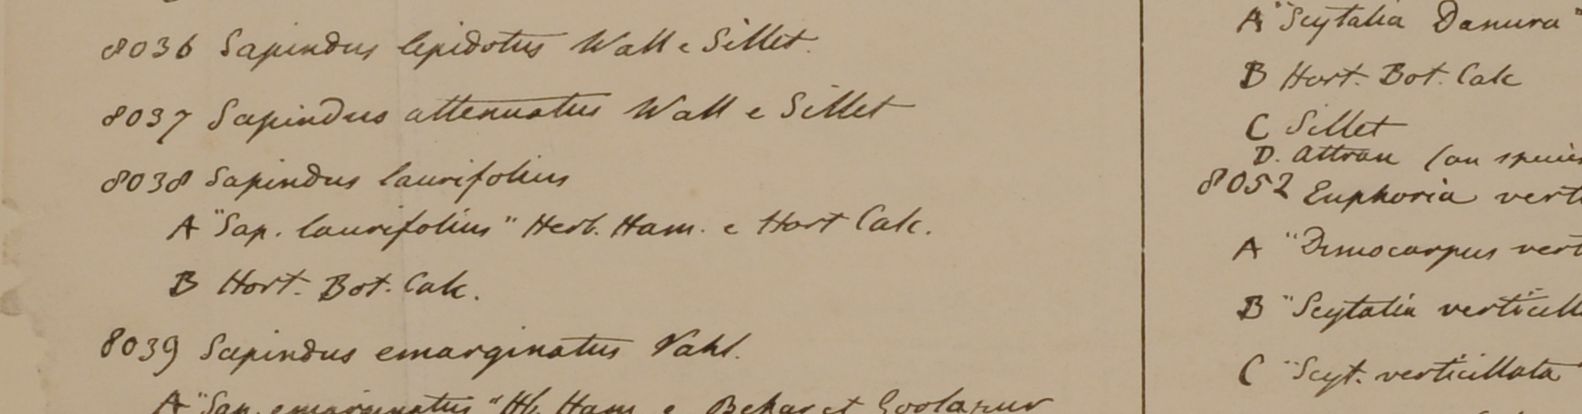 8036 Sapindus lepidotus Wall e Sillet.
8037 Sapindus attenuatus Wall e Sillet
8038 Sapindus laurifolius
A "Sap. laurifolius" Herb. Ham. e Hort Calc.
B Hort. Bot. Calc.
8039 Sapindus emarginatus Vahl.
A "Sap. emarginatus" Hb. Ham. e Behar et Goolapur
A "Scytalia Danura"
B Hort. Bot. Calc
C Sillet
D. Attran (an species
8052 Euphoria vert
A "Dimocarpus vert
B "Scytalia verticill
C "Scyt. verticillata